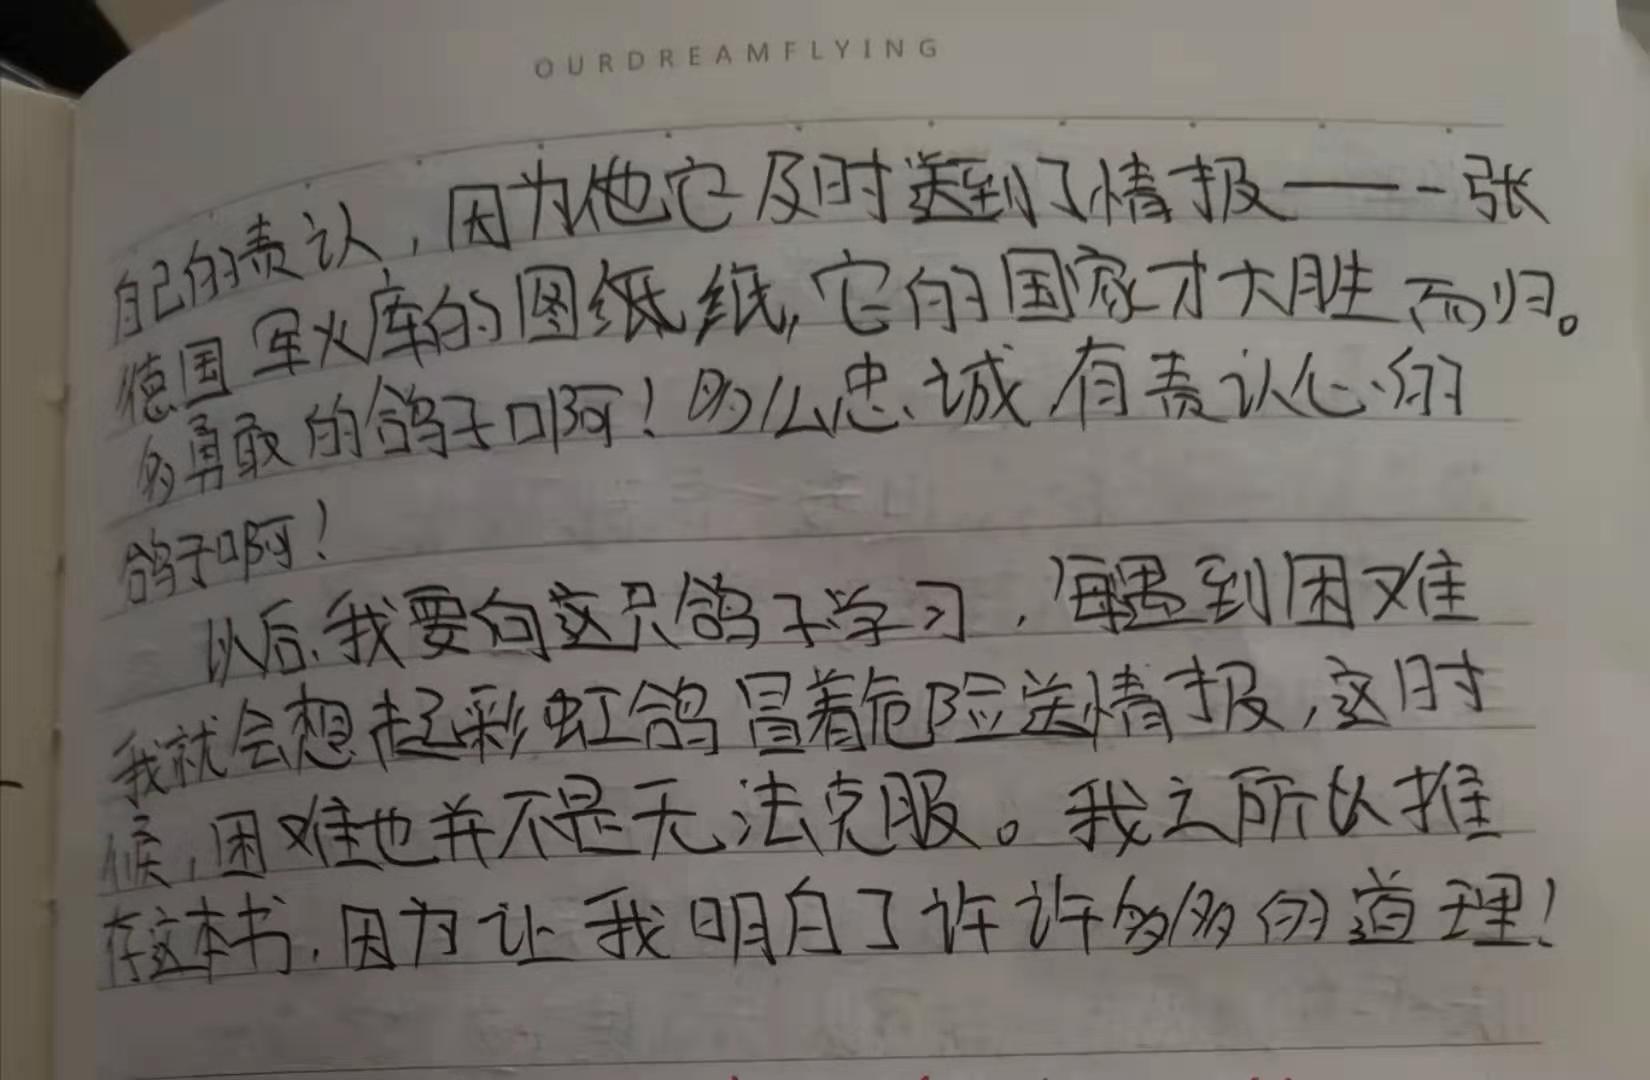 OURDREAMFLYING
自己的责认，因为他它及时送到了情报——一张
德国军火库的图纸纸，它的国家才大胜而归。
多勇敢的鸽子啊！多么忠诚有责认心的
鸽子啊！
以后，我要向这只鸽子学习，每遇到困难
我就会想起彩虹鸽冒着危险送情报，这时
候，困难也并不是无法克服。我之所以推
存这本书，因为让我明白了许许多多的道理！